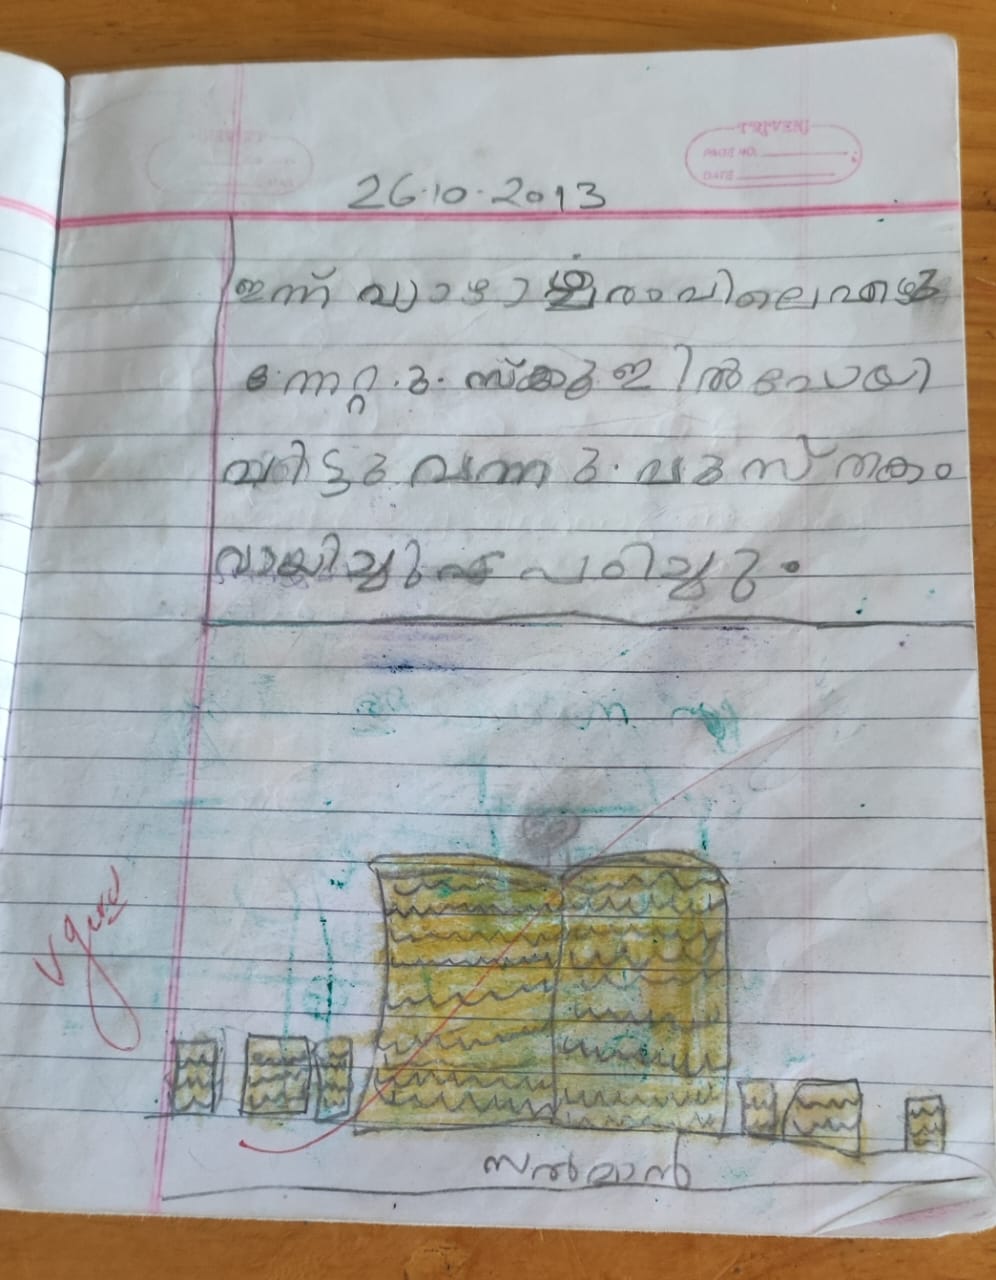 TRIVENI
PAGE NO.
DATE
26.10.2013
ഇന്ന് വ്യാഴാഴ്ച രാവിലെ എഴു
ന്നേറ്റു. സ്കൂളിൽ പോയി
വന്നു. പുസ്തകം
വായിച്ചു പഠിച്ചു.
V good
സൽമാൻ